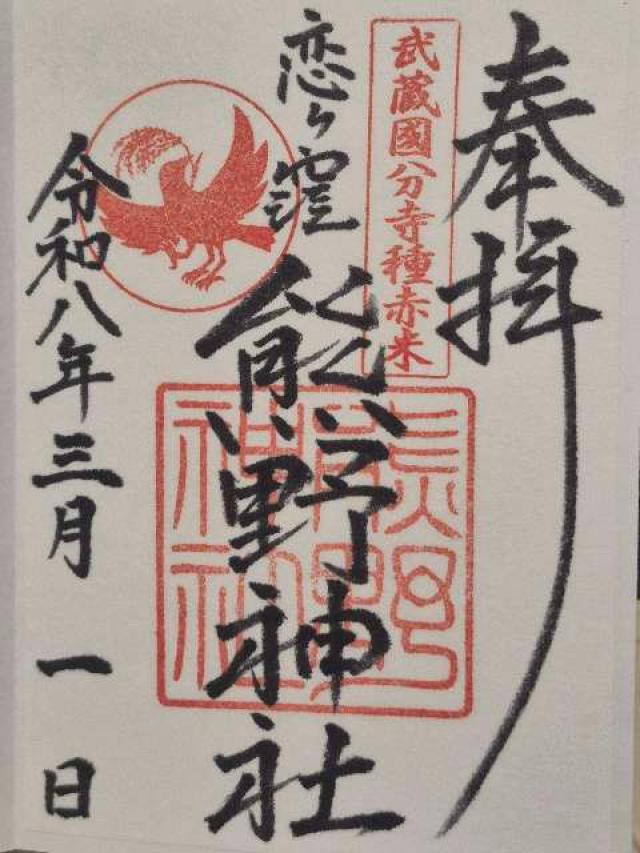 奉拝
武蔵國分寺種赤米
恋ヶ窪
熊野神社
熊野
神社
令和八年三月一日